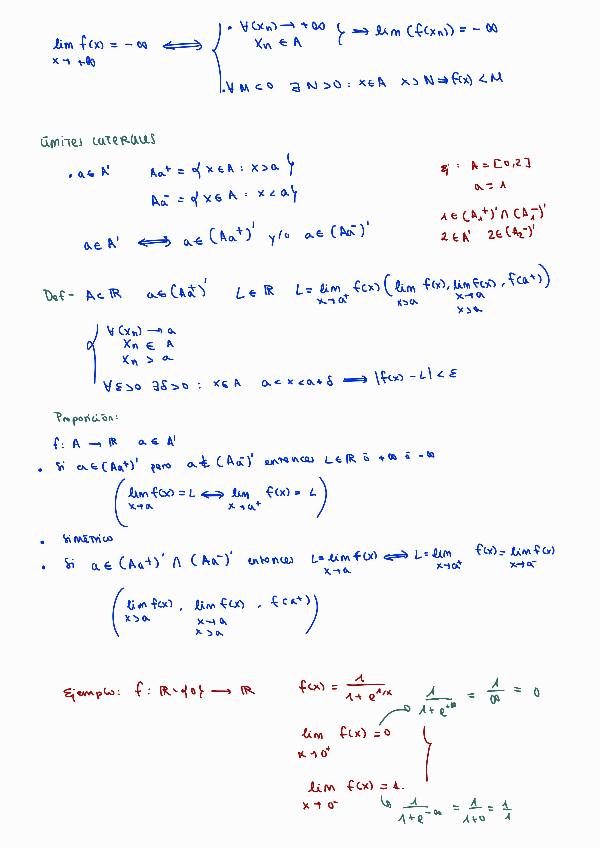 lim f(x) = -∞ ⟺ { • ∀(xn) → +∞ xn ∈ A } ⟹ lim (f(xn)) = -∞
x→ +∞
• ∀ M < 0 ∃ N > 0 : x ∈ A x > N ⟹ f(x) < M
Límites laterales
• a ∈ A' Aa⁺ = { x ∈ A : x > a }
Aa⁻ = { x ∈ A : x < a }
ej : A = [0,2]
a = 1
1 ∈ (A₁⁺)' ∩ (A₁⁻)'
2 ∈ A' 2 ∈ (A₂⁻)'
a ∈ A' ⟺ a ∈ (Aa⁺)' y/o a ∈ (Aa⁻)'
Def - A ⊂ ℝ a ∈ (Aa⁺)' L ∈ ℝ L = lim f(x) ( lim f(x), lim f(x), f(a⁺) )
x→a⁺ x>a x→a
x>a
{ ∀(xn) → a
xn ∈ A
xn > a
∀ε>0 ∃δ>0 : x∈A a < x < a+δ ⟹ |f(x) - L| < ε
Proposición:
f: A → ℝ a ∈ A'
• Si a ∈ (Aa⁺)' pero a ∉ (Aa⁻)' entonces L ∈ ℝ ó +∞ ó -∞
( lim f(x) = L ⟺ lim f(x) = L )
x→a x→a⁺
• Simétrico
• Si a ∈ (Aa⁺)' ∩ (Aa⁻)' entonces L = lim f(x) ⟺ L = lim f(x) = lim f(x)
x→a x→a⁺ x→a⁻
( lim f(x) , lim f(x) , f(a⁺) )
x>a x→a
x>a
Ejemplo: f: ℝ\{0} → ℝ f(x) = 1/(1+e^(1/x)) 1/(1+e^(+∞)) = 1/∞ = 0
lim f(x) = 0
x→0⁺
lim f(x) = 1.
x→0⁻ 1/(1+e^(-∞)) = 1/(1+0) = 1/1